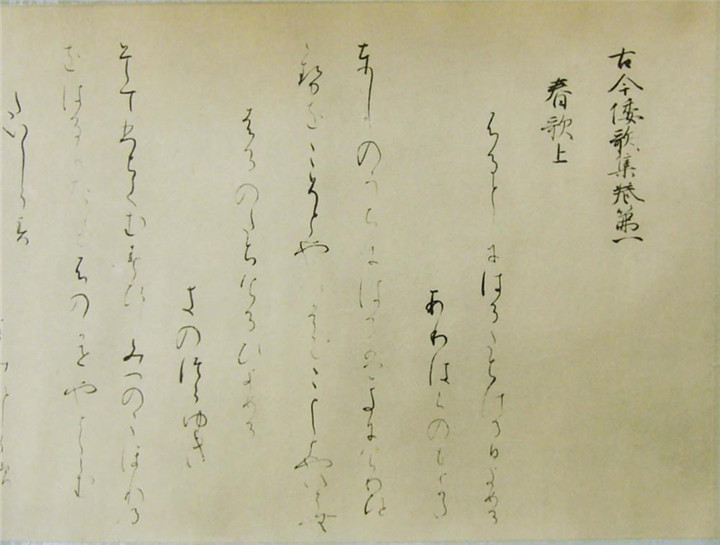 古今倭歌集巻第一
春歌上
ふるとしにはるたちける日よめる
ありはらのもとかた
としのうちにはるはきにけりひと
せをこそとやいはむことしとやいはむ
はるのたちけるひよめる
きのつらゆき
そてひちてむすひしみつのこほれる
をはるたつけふのかせやとくらむ
たいしらす